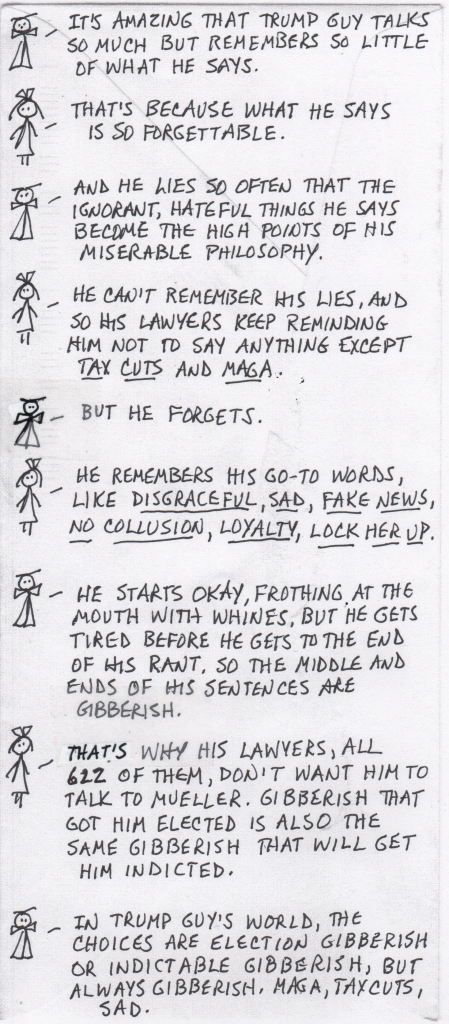 IT'S AMAZING THAT TRUMP GUY TALKS
SO MUCH BUT REMEMBERS SO LITTLE
OF WHAT HE SAYS.
THAT'S BECAUSE WHAT HE SAYS
IS SO FORGETTABLE.
AND HE LIES SO OFTEN THAT THE
IGNORANT, HATEFUL THINGS HE SAYS
BECOME THE HIGH POINTS OF HIS
MISERABLE PHILOSOPHY.
HE CAN'T REMEMBER HIS LIES, AND
SO HIS LAWYERS KEEP REMINDING
HIM NOT TO SAY ANYTHING EXCEPT
TAX CUTS AND MAGA.
BUT HE FORGETS.
HE REMEMBERS HIS GO-TO WORDS,
LIKE DISGRACEFUL, SAD, FAKE NEWS,
NO COLLUSION, LOYALTY, LOCK HER UP.
HE STARTS OKAY, FROTHING AT THE
MOUTH WITH WHINES, BUT HE GETS
TIRED BEFORE HE GETS TO THE END
OF HIS RANT, SO THE MIDDLE AND
ENDS OF HIS SENTENCES ARE
GIBBERISH.
THAT'S WHY HIS LAWYERS, ALL
622 OF THEM, DON'T WANT HIM TO
TALK TO MUELLER. GIBBERISH THAT
GOT HIM ELECTED IS ALSO THE
SAME GIBBERISH THAT WILL GET
HIM INDICTED.
IN TRUMP GUY'S WORLD, THE
CHOICES ARE ELECTION GIBBERISH
OR INDICTABLE GIBBERISH, BUT
ALWAYS GIBBERISH. MAGA, TAX CUTS,
SAD.